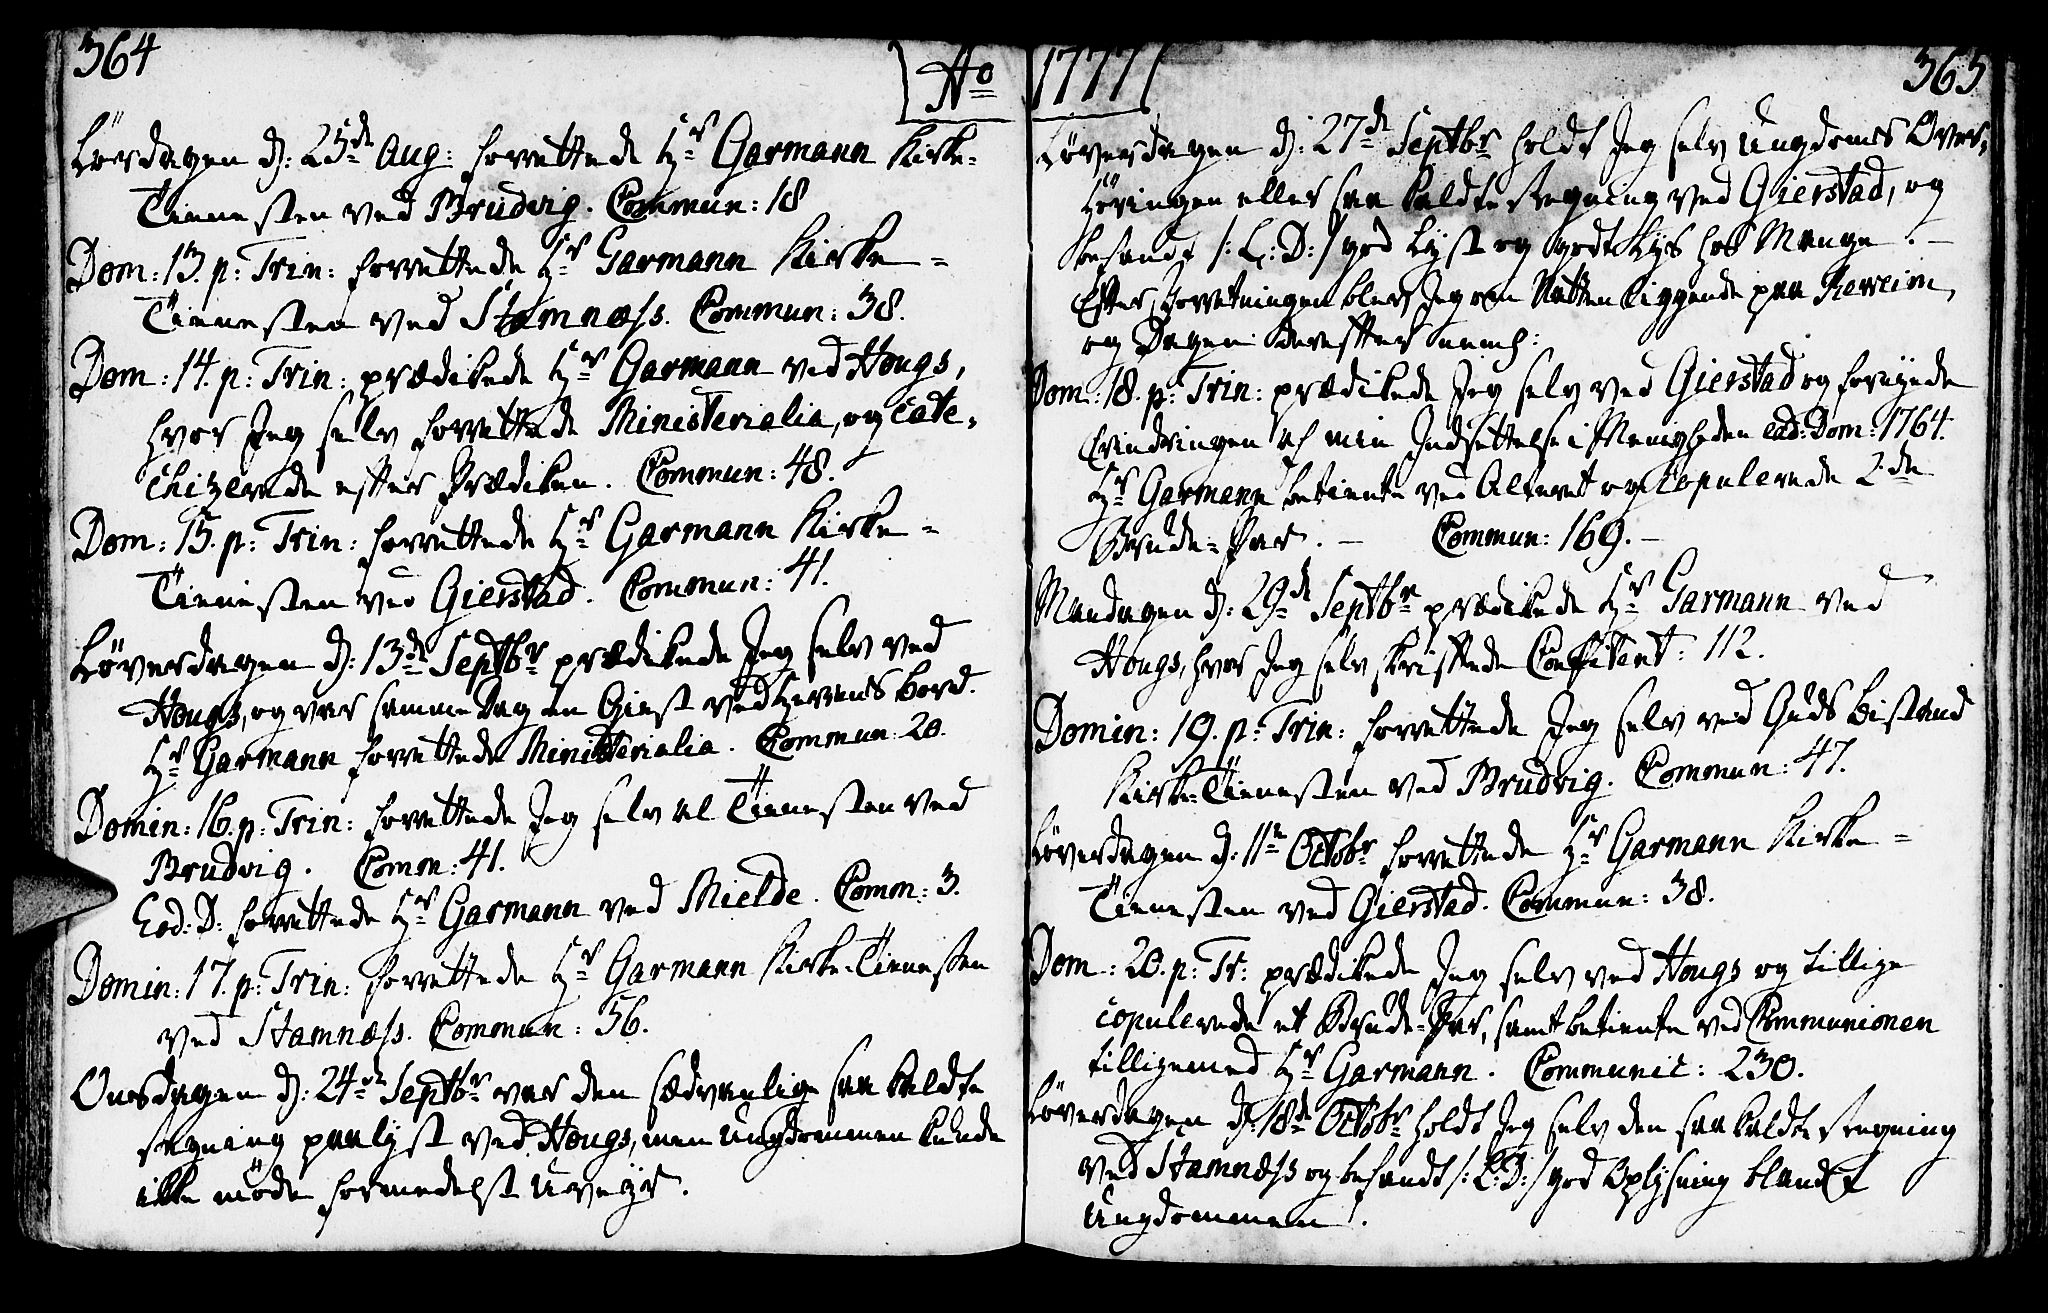 364
Aº
Lørdagen d: 23de Aug: forrettede Hr Garmann Kirke-
Tienesten ved Brudvig. Commun: 18
Dom: 13. p: Trin: forrettede Hr Garmann Kirke-
Tienesten ved Stamnæss. Commun: 38.
Dom: 14. p: Trin: prædikede Hr Garmann ved Hougs,
hvor Jeg selv forrettede Ministerialia, og cate-
chizerede efter Prædiken. Commun: 48.
Dom: 15. p: Trin: forrettede Hr Garmann Kirke-
Tienesten ved Gierstad. Commun: 41.
Løverdagen d: 13de Septbr prædikede Jeg selv ved
Hougs, og var samme dag en Giest ved Herrens bord.
Hr Garmann forrettede Ministerialia. Commun: 20.
Domin: 16. p: Trin: forrettede Jeg selv al Tienesten ved
Brudvig. Comm: 41.
Eod: D: forrettede Hr Garmann ved Mielde. Comm: 3.
Domin: 17. p: Trin: forrettede Hr Garmann Kirke-Tienesten
ved Stamnæss. Commun: 56.
Onsdagen d: 24de Septbr var den sædvanlige saa kaldte
stegning paalyst ved Hougs, men Ungdommen kunde
ikke møde formedelst Uveyr.
1777
365
Løverdagen d: 27de Septbr holdt Jeg selv Ungdoms Over-
høringen eller saa kaldte stegning ved Gierstad, og
befandt /: L: D: / god Lyst og godt Lys hos Mange. -
Efter Forretningen blev Jeg om Natten liggende paa Reveim,
og Dagen derefter neml:
Dom: 18. p: Trin: prædikede Jeg selv ved Gierstad og fornyede
Erindringen af min Indsettelse i Menigheden ead: Dom: 1764.
Hr Garmann betiente ved Alteret og copulerede 2de
Brude-Par. - Commun: 169. -
Mandagen d: 29de Septbr prædikede Hr Garmann ved
Hougs, hvor Jeg selv skriftede Confitent: 112.
Domin: 19. p: Trin: forrettede Jeg selv ved Guds bistand
Kirke-Tienesten ved Brudvig. Commun: 47.
Løverdagen d: 11te Octobr forrettede Hr Garmann Kirke-
Tienesten ved Gierstad. Commun: 38.
Dom: 20. p: Tr: prædikede Jeg selv ved Hougs og tillige
copulerede et Brude-Par, samt betiente ved Communionen
tilligemed Hr Garmann. Communic: 230.
Løverdagen d: 18de Octobr holdt Jeg selv den saa kaldte stegning
ved Stamnæss og befandt /: L: D: / god Oplysning blandt
Ungdommen.